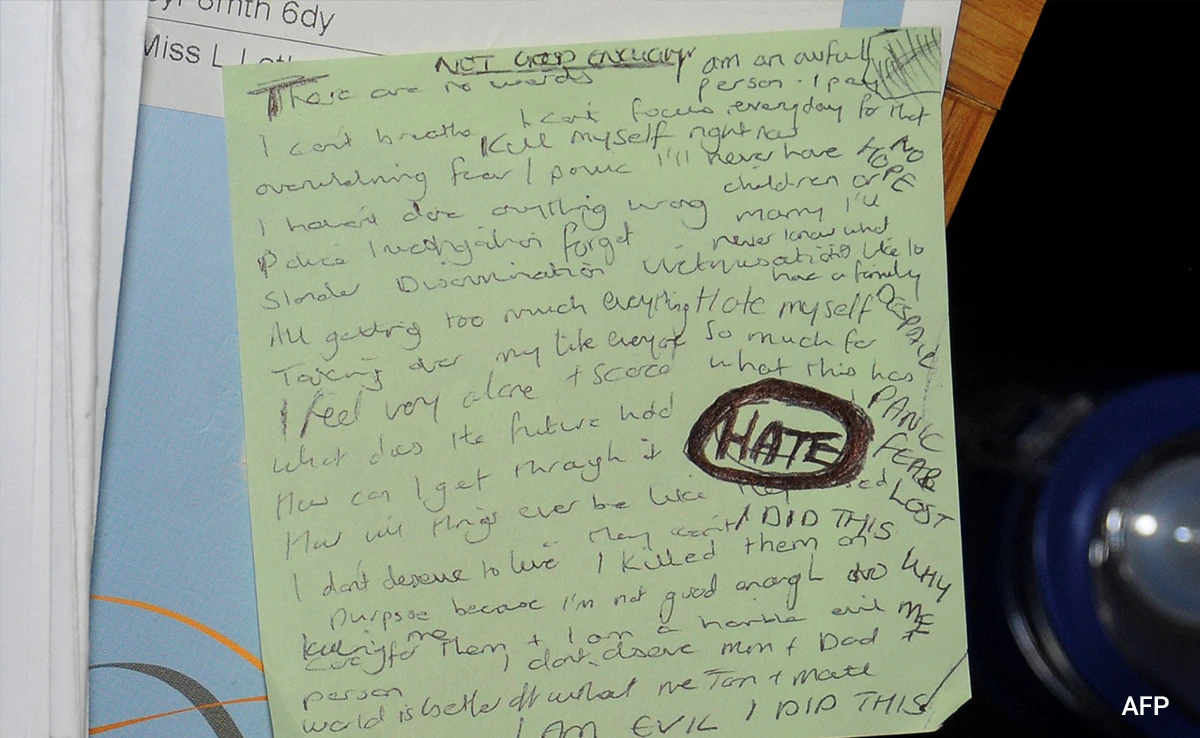 Smith 6dy
Miss L
NOT GOOD ENOUGH
There are no words
I am an awful
person. I pay
I can't breathe I can't focus everyday for that
Kill myself right now
overwhelming fear / panic I'll never have NO
HOPE
children or
I haven't done anything wrong marry I'll
Police Investigation forget never know what
Slander Discrimination Victimisation it's like to
have a family
All getting too much everything Hate myself
DESPAIR
Taking over my life everyone so much for
I feel very alone + scared what this has
PANIC
What does the future hold
HATE
FEAR
How can I get through it
LOST
How will things ever be like they used
I DID THIS
I don't deserve to live I killed them on
purpose because I'm not good enough
WHY
ME
to care for them + I am a horrible evil
person I don't deserve mum + Dad
world is better off without me
I AM EVIL I DID THIS
AFP